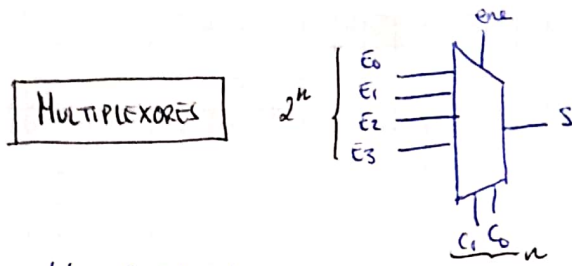 ena
MULTIPLEXORES
2^n
E0
E1
E2
E3
S
C1 C0
n